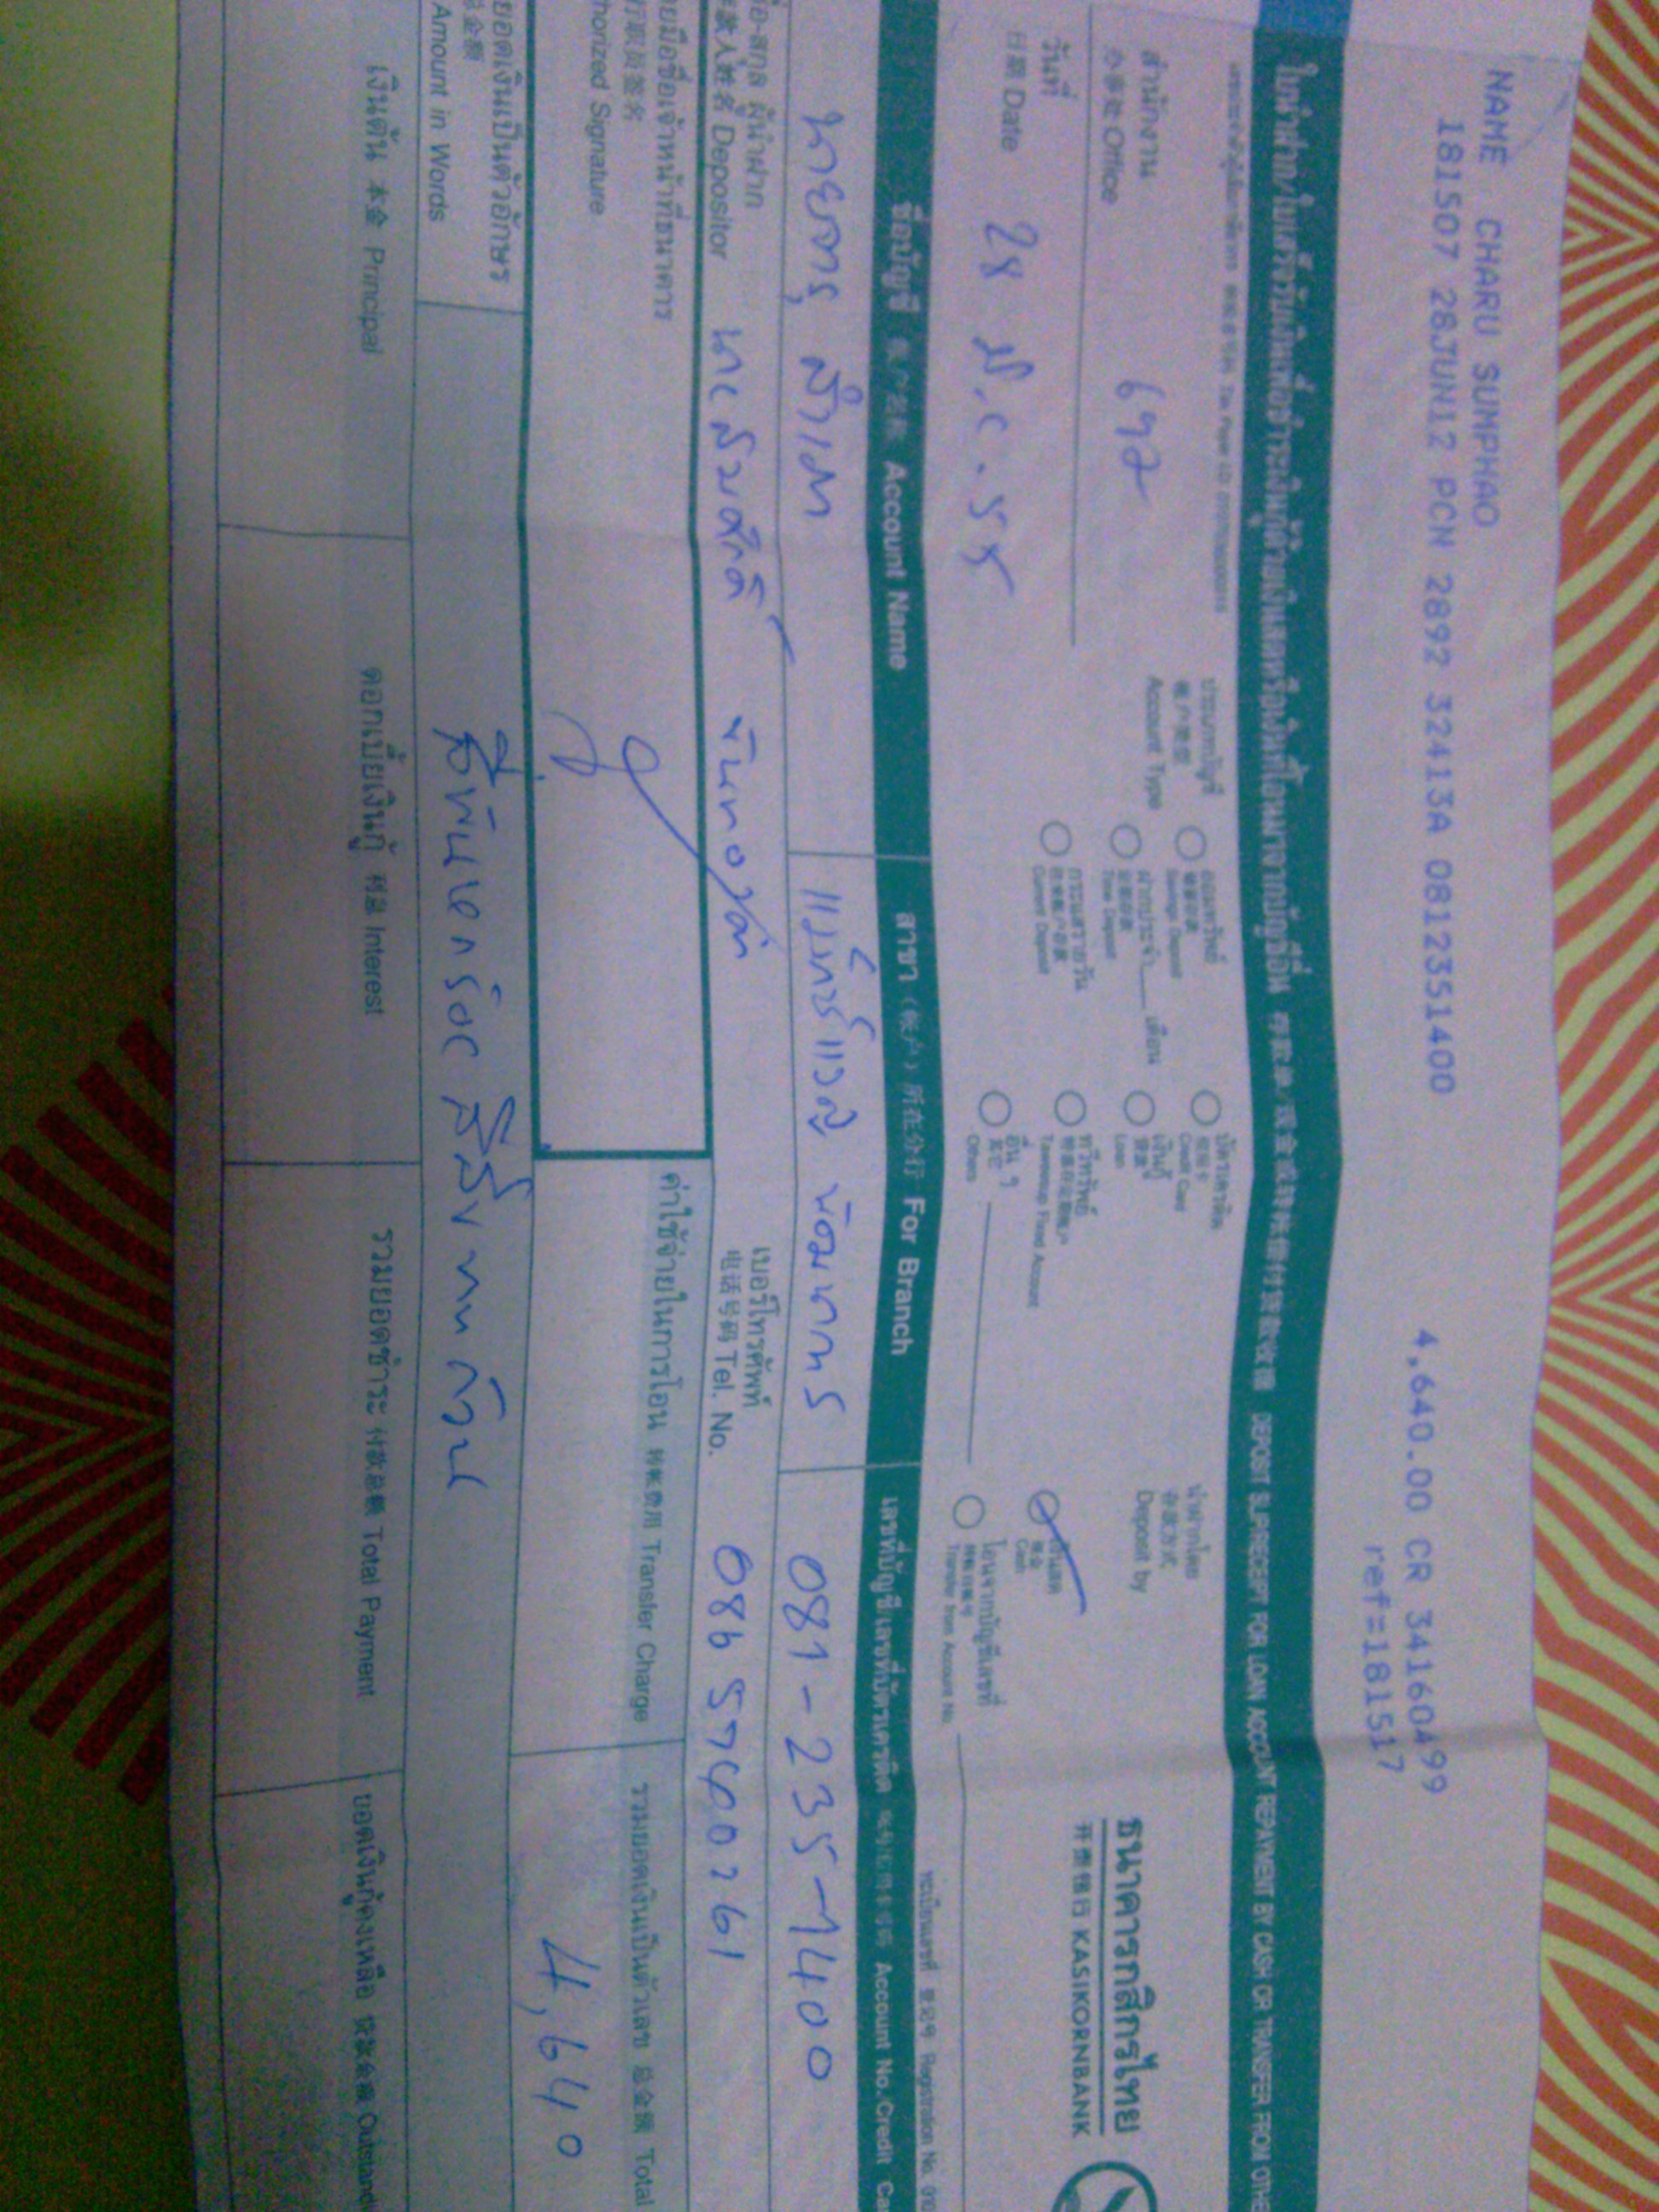 NAME CHARU SUMPHAO
181507 28JUN12 PCN 2892 32413A 0812351400 4,640.00 CR 34160499
ref=181517
ใบนำฝาก/ใบเสร็จรับเงินเพื่อชำระเงินกู้ด้วยเงินสดหรือเงินที่โอนมาจากบัญชีอื่น DEPOSIT SLIP/RECEIPT FOR LOAN ACCOUNT REPAYMENT BY CASH OR TRANSFER FROM OTHE
สำนักงาน
办事处 Office 692
วันที่
日期 Date 28 มิ.ย. 55
ประเภทบัญชี
帐户类型
Account Type
ออมทรัพย์
Savings Deposit
ฝากประจำ ___ เดือน
Time Deposit
กระแสรายวัน
Current Deposit
บัตรเครดิต
Credit Card
เงินกู้
Loan
ทวีทรัพย์
Taweesup Fixed Account
อื่น ๆ
其它
Others
นำฝากโดย
存款方式
Deposit by
เงินสด
现金
Cash
โอนจากบัญชีเลขที่
Transfer from Account No.
ธนาคารกสิกรไทย
开泰银行 KASIKORNBANK
ทะเบียนเลขที่ 登记号 Registration No.
ชื่อบัญชี 帐户名称 Account Name
สาขา (帐户) 所在分行 For Branch
เลขที่บัญชี/เลขที่บัตรเครดิต Account No./Credit Ca
นายจารุ สำเภา
081-235-1400
ชื่อ-สกุล ผู้นำฝาก
存款人姓名 Depositor
เบอร์โทรศัพท์
电话号码 Tel. No. 086 5740261
ลายมือชื่อเจ้าหน้าที่ธนาคาร
行职员签名
horized Signature
ค่าใช้จ่ายในการโอน 转帐费用 Transfer Charge
รวมยอดเงินเป็นตัวเลข 总金额 Total
4,640
ยอดเงินเป็นตัวอักษร
总金额
Amount in Words
สี่พันหกร้อยสี่สิบบาทถ้วน
เงินต้น 本金 Principal
ดอกเบี้ยเงินกู้ 利息 Interest
รวมยอดชำระ 付款总额 Total Payment
ยอดเงินกู้คงเหลือ 贷款余额 Outstandi